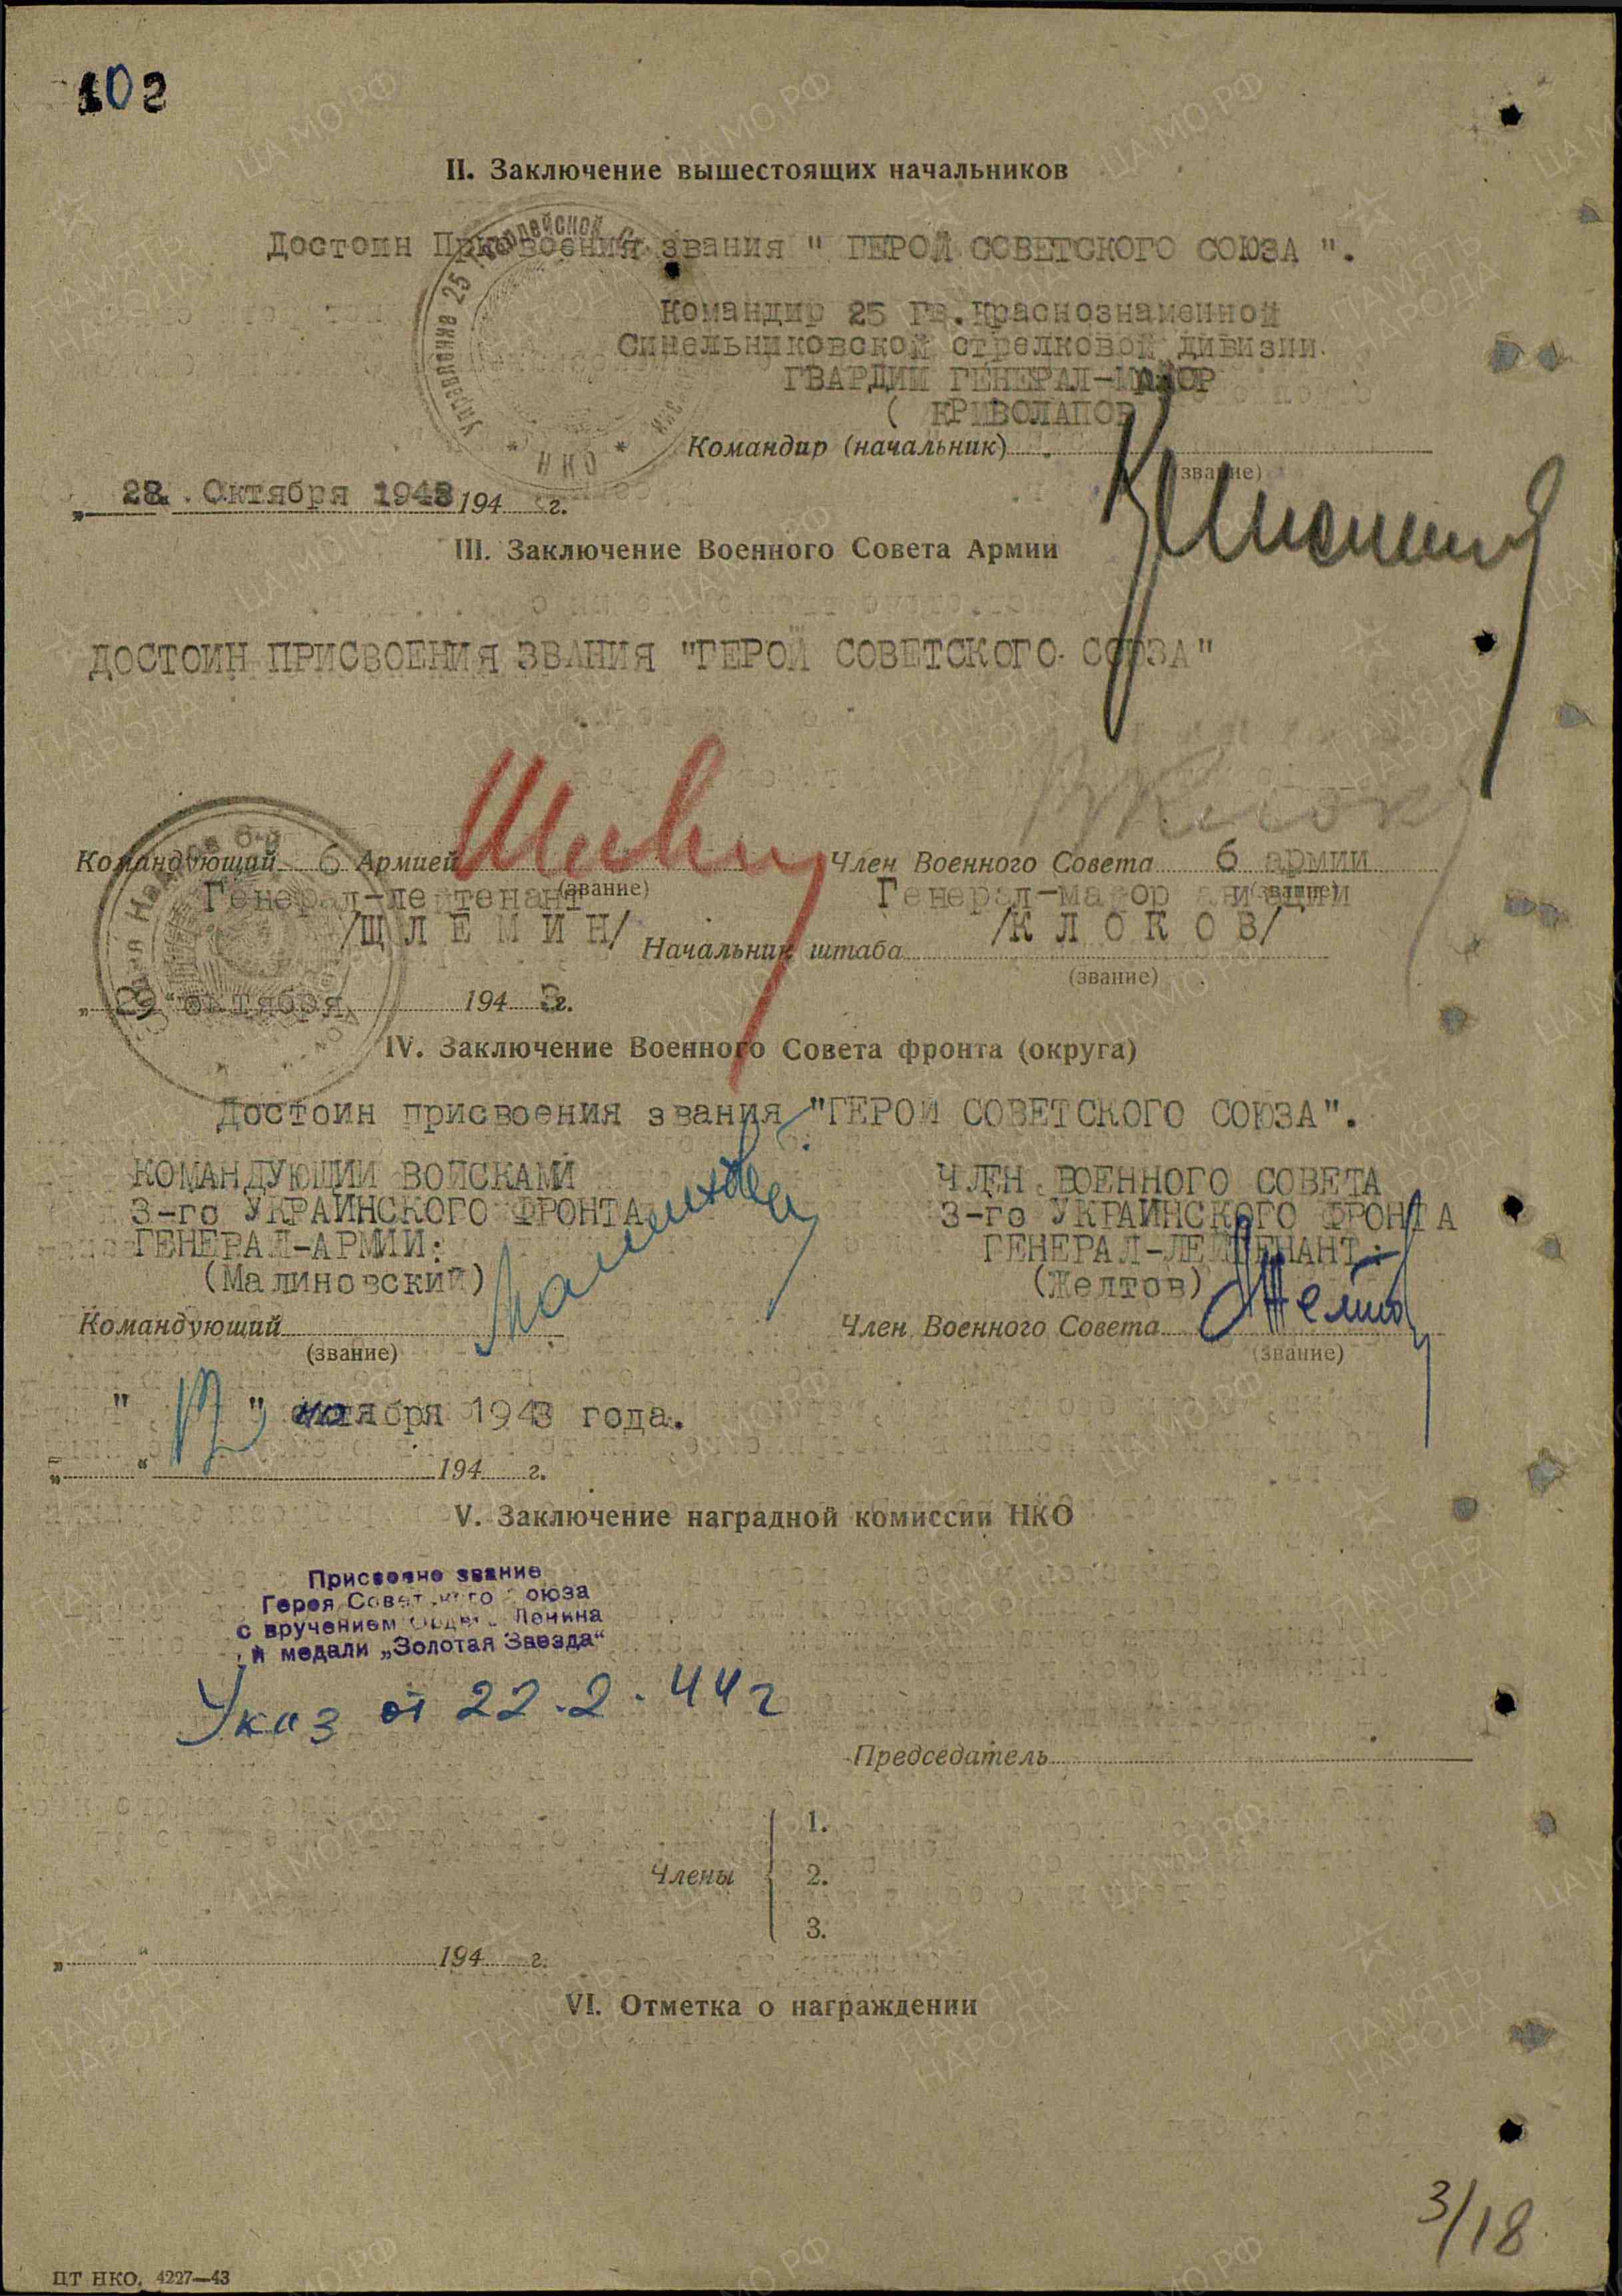 102
II. Заключение вышестоящих начальников
Достоин Присвоения звания " ГЕРОЙ СОВЕТСКОГО СОЮЗА ".
Командир 25 Гв.Краснознаменной
Синельниковской стрелковой дивизии.
ГВАРДИИ ГЕНЕРАЛ-МАЙОР
( КРИВОЛАПОВ
Командир (начальник)
(звание)
Управление 25 Гвардейской
* НКО *
„ 28. Октября 1943 194 г.
III. Заключение Военного Совета Армии
ДОСТОИН ПРИСВОЕНИЯ ЗВАНИЯ "ГЕРОЙ СОВЕТСКОГО СОЮЗА"
Командующий 6 Армией Член Военного Совета 6 армии
(звание) (звание)
Генерал-лейтенант Генерал-майор авиации
/ШЛЕМИН/ /КЛОКОВ/
Начальник штаба
(звание)
„ 29 " октября 194 3 г.
IV. Заключение Военного Совета фронта (округа)
Достоин присвоения звания "ГЕРОЙ СОВЕТСКОГО СОЮЗА".
КОМАНДУЮЩИЙ ВОЙСКАМИ ЧЛЕН ВОЕННОГО СОВЕТА
3-го УКРАИНСКОГО ФРОНТА 3-го УКРАИНСКОГО ФРОНТА
ГЕНЕРАЛ-АРМИИ: ГЕНЕРАЛ-ЛЕЙТЕНАНТ:
(Малиновский) (Желтов)
Командующий Член Военного Совета
(звание) (звание)
" " ноября 1943 года.
„ “ 194 г.
V. Заключение наградной комиссии НКО
Присвоено звание
Героя Советского Союза
с вручением Ордена Ленина
и медали „Золотая Звезда“
Указ от 22.2.44г
Председатель
Члены
1.
2.
3.
„ “ 194 г.
VI. Отметка о награждении
3/18
ЦТ НКО. 4227—43
ПАМЯТЬ НАРОДА
ЦА МО РФ